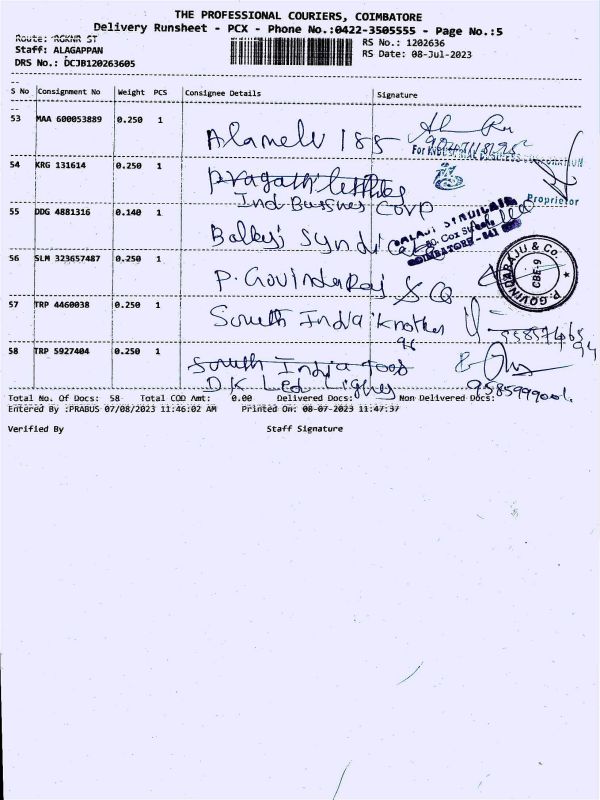 THE PROFESSIONAL COURIERS, COIMBATORE
Delivery Runsheet - PCX - Phone No.:0422-3505555 - Page No.:5
Route: RGKNR ST
Staff: ALAGAPPAN
DRS No.: DCJB120263605
RS No.: 1202636
RS Date: 08-Jul-2023
S No Consignment No Weight PCS Consignee Details Signature
53 MAA 600053889 0.250 1 Alamelu 185
54 KRG 131614 0.250 1 Pragathi
Ind Bussnes Corp
Proprietor
55 DDG 4881316 0.140 1 Balleji Syndicate
COIMBATORE - 641
56 SLM 323657487 0.250 1 P. Govindaraj & Co
P. GOVINDARAJU & Co.
CBE-9
57 TRP 4460038 0.250 1 South India Knotter
96
58 TRP 5927404 0.250 1 South India food
D K Led Lights
Total No. Of Docs: 58 Total COD Amt: 0.00 Delivered Docs: Non Delivered Docs:
Entered By :PRABUS 07/08/2023 11:46:02 AM Printed On: 08-07-2023 11:47:37
Verified By Staff Signature